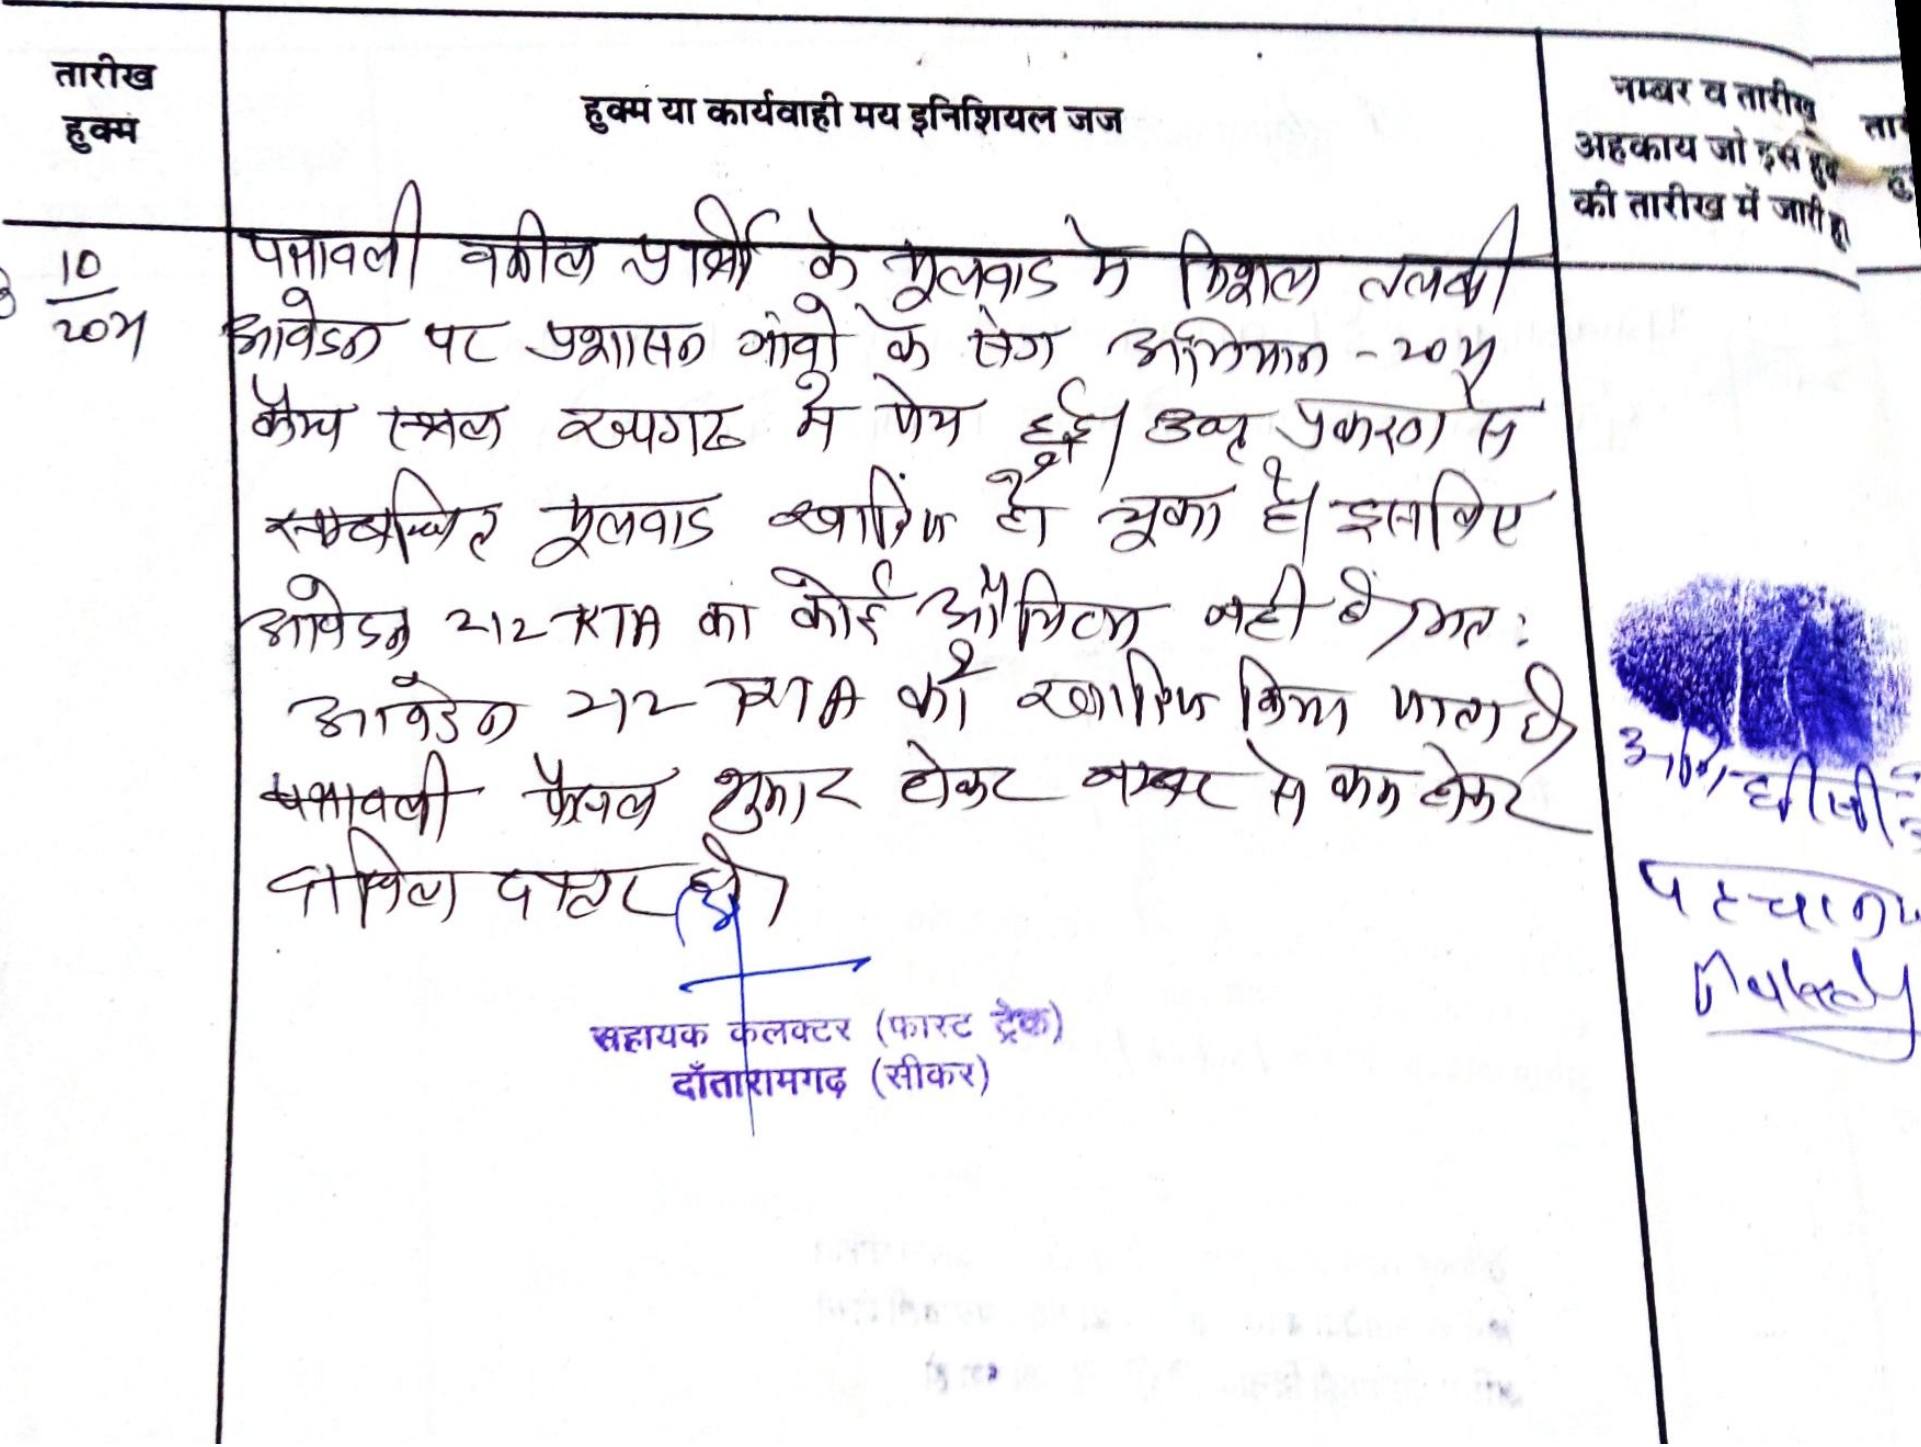 तारीख
हुक्म
हुक्म या कार्यवाही मय इनिशियल जज
नम्बर व तारीख
अहकाय जो इस हुक्
की तारीख में जारी हु
10
पत्रावली वकील प्रार्थी के मूलवाद मे मिशल तलबी
आवेदन पर प्रशासन गांवो के संग अभियान - 2021
कैम्प स्थल रूपगढ मे पेश हुई। उक्त प्रकरण से
सम्बन्धित मूलवाद खारिज हो चूका है। इसलिए
आवेदन 212 RTA का कोई औचित्य नही है। अतः
आवेदन 212 RTA को खारिज किया जाता है।
पत्रावली फैसल शुमार होकर नम्बर से कम होकर
दाखिल दफ्तर हो।
सहायक कलक्टर (फास्ट ट्रैक)
दाँतारामगढ़ (सीकर)